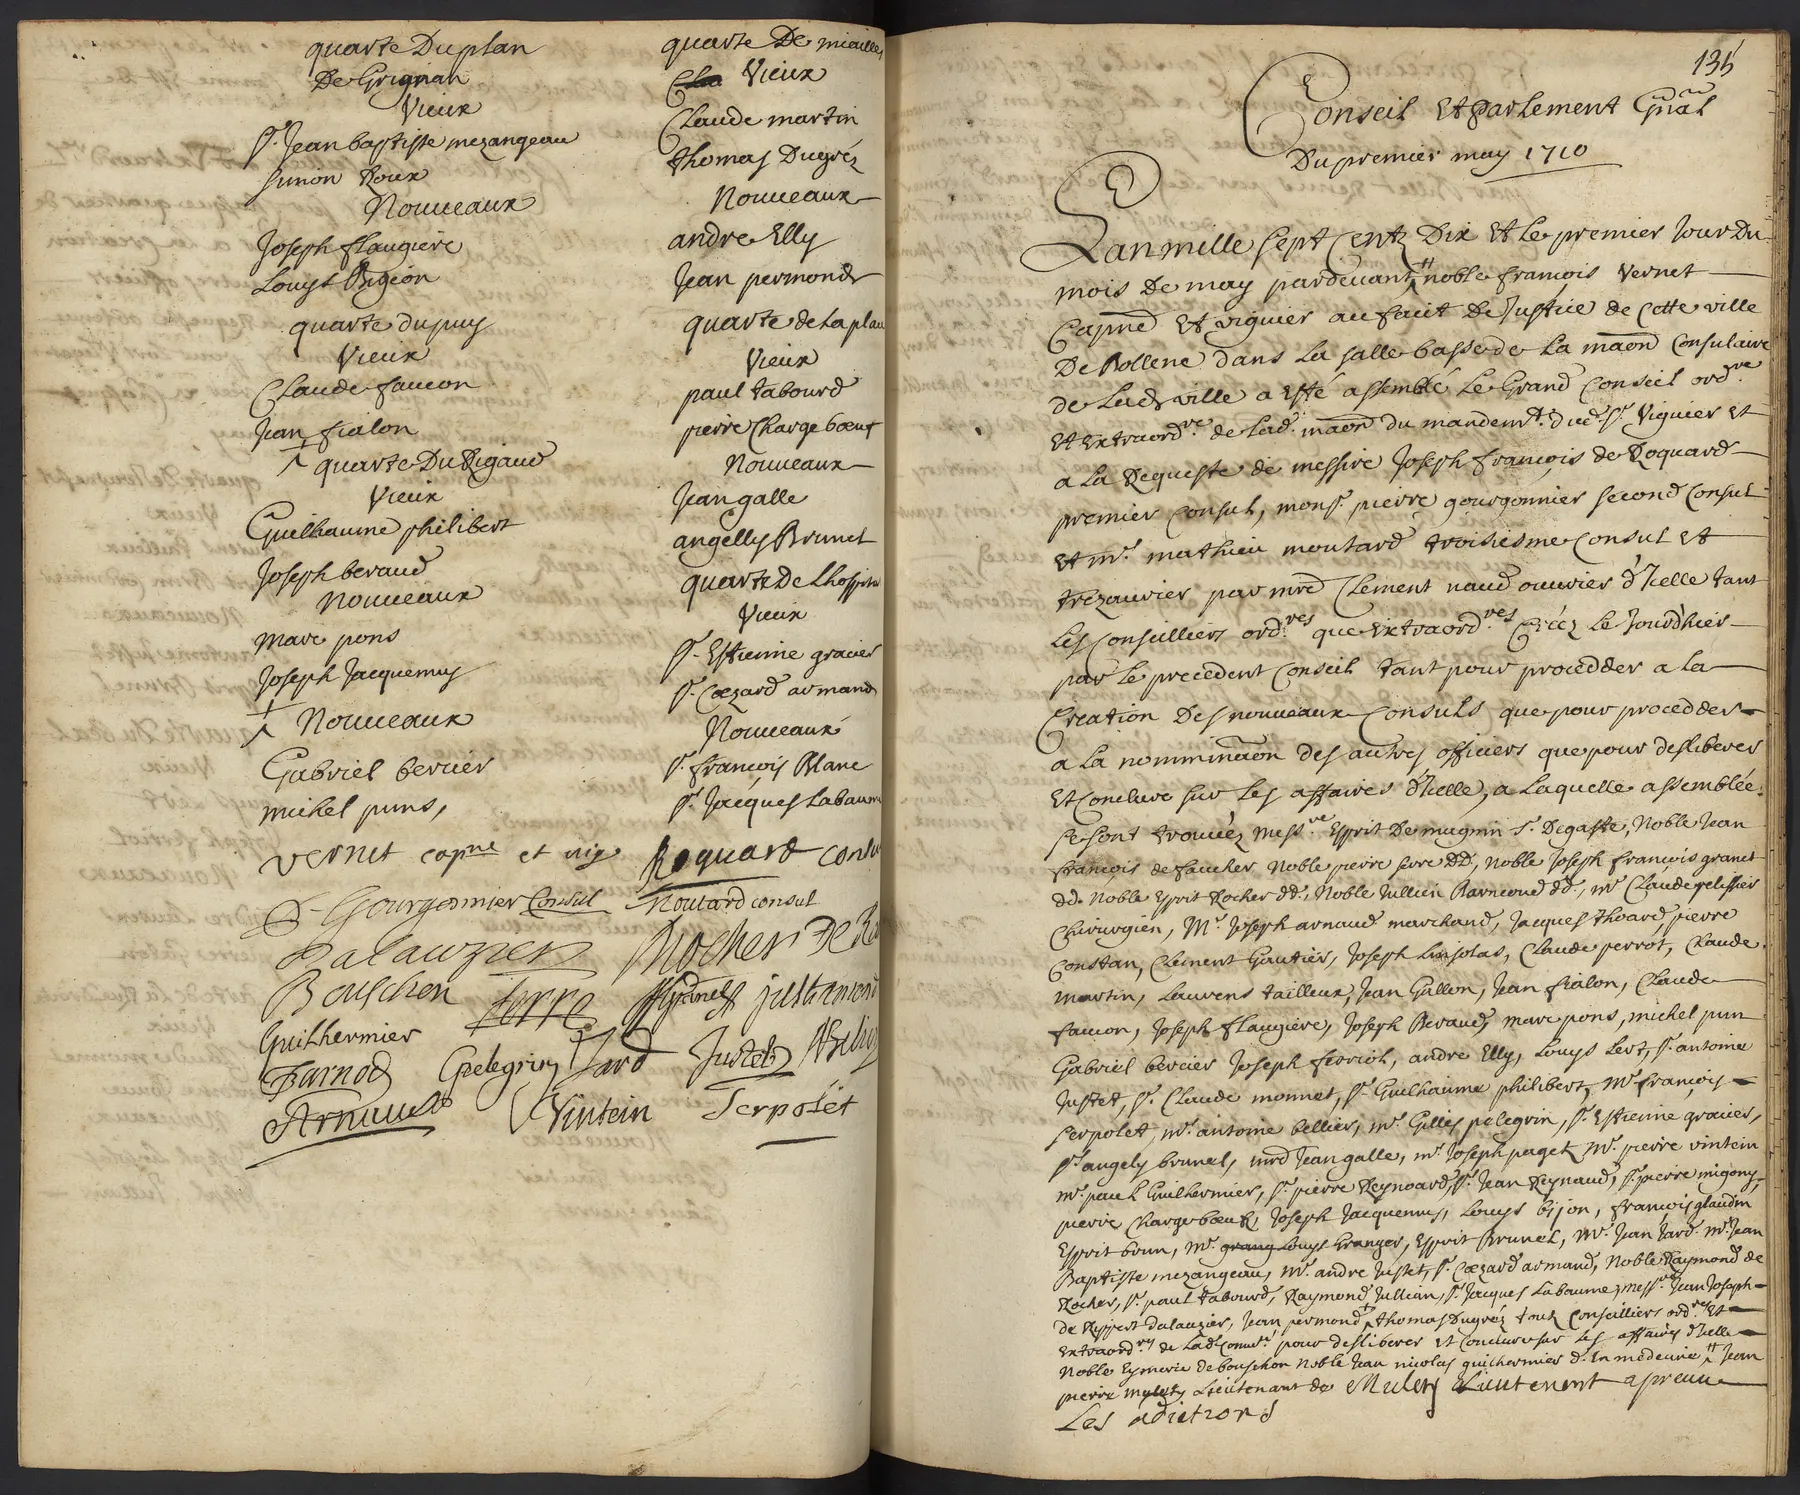 quarte Duplan
De Grignan
Vieux
sr. Jean baptiste mezangeau
simon Roux
Nouueaux
Joseph flaugiere
Louys Bigeon
quarte dupuy
Vieux
Claude faucon
Jean fialon
quarte Du Rigaud
Vieux
Guilhaume philibert
Joseph beraud
nouueaux
marc pons
Joseph Jacquemus
Nouueaux
Gabriel bercier
michel puns,
quarte De miailles
Vieux
Claude martin
thomas Dugréz
Nouueaux
andre Elly
Jean permond
quarte de la plan
Vieux
paul tabourd
pierre Charge boeuf
Nouueaux
Jean galle
angelly Brunel
quarte De Lhospita
Vieux
sr. Estienne gracier
sr. Coezard armand
Nouueaux
sr. francois Blanc
sr. Jacques Labaum
Vernet capne et vig
Roquard consu
Gourgonnier Consul
Moutard consul
Dalauzier
Rocher De
Bouschon
Serre
Guilhermier
Barnod
Pelegrin
Jard
Justet
Arnaud
Vintein
Serpolet
135
Conseil Et Parlement Gñal
Du premier may 1710
Lan mille sept Centz Dix Et Le premier Jour Du
mois De may pardeuant noble francois Vernet
Capne Et viguier au fait De Justice de Cette ville
De Bollene dans La salle basse de La maon Consulaire
de Lad. ville a Esté assemblé Le Grand Conseil ordre.
Et Extraordre. de Lad. maon du mandemt. dud. sr. Viguier Et
a La Requeste de messire Joseph francois de Roquard
premier Consul, monsr. pierre gourgonnier second Consul
Et mr. mathieu moutard troisiesme Consul Et
trezaurier par mre Clement naud ouurier d'Icelle tant
Les Conseilliers ordres. que Extraordres. Créez Le Jourdhier
par Le precedent Conseil tant pour procedder a La
Creation Des nouueaux Consuls que pour procedder
a La nominnaon des autres officiers que pour desliberer
Et Conclure sur Les affaires d'Icelle, a Laquelle assemblée
se sont trouuéz messre. Esprit De mugnin sr. Degaste, Noble Jean
francois de faucher Noble pierre serre dd., Noble Joseph francois granet
dd. Noble Esprit Rocher dd., Noble Jullien Barnoud dd., mr. Claude pelissier
Chirurgien, Mr. Joseph arnaud marchand, Jacques thoard, pierre
Constan, Clement Gautier, Joseph Linsolas, Claude perrot, Claude
martin, Laurens tailleux, Jean Gallon, Jean fialon, Claude
faucon, Joseph flaugiere, Joseph Beraud, marc pons, michel pun
Gabriel bercier Joseph ferriol, andre Elly, Louys Lert, sr. antoine
Justet, sr. Claude monnet, sr. Guilhaume philibert, Mr. francois
serpolet, mr. antoine bellier, mr. Gilles pelegrin, sr. Estienne gracier,
sr. angely brunel, mre Jean galle, mr. Joseph paget, Mr. pierre vintein
mr. paul Guilhermier, sr. pierre Reynoard, sr. Jean Reynaud, sr. pierre migony,
pierre Chargeboeuf, Joseph Jacquemus, Louys bijon, francois glaudin
Esprit brun, Mr. Louys Granger, Esprit Brunel, Mr. Jean Jard, mr. Jean
Baptiste mezangeau, Mr. andre Justet, sr. Coezard armand, Noble Raymond de
Rocher, sr. paul tabourd, Raymond Jullian, sr. Jacques Labaume, messre. Jean Joseph
de Rippert dalauzier, Jean permond, thomas Dugréz touts Conseilliers ordres Et
Extraordres de Lad. Commté. pour desliberer Et Conclure sur Les affaires d'Icelle
Noble Eymeric de bouschon Noble Jean nicolas guilhermier d. En medecine Jean
pierre mulety Lieutenant de Mulety Lieutenent apreuue
Les adictions